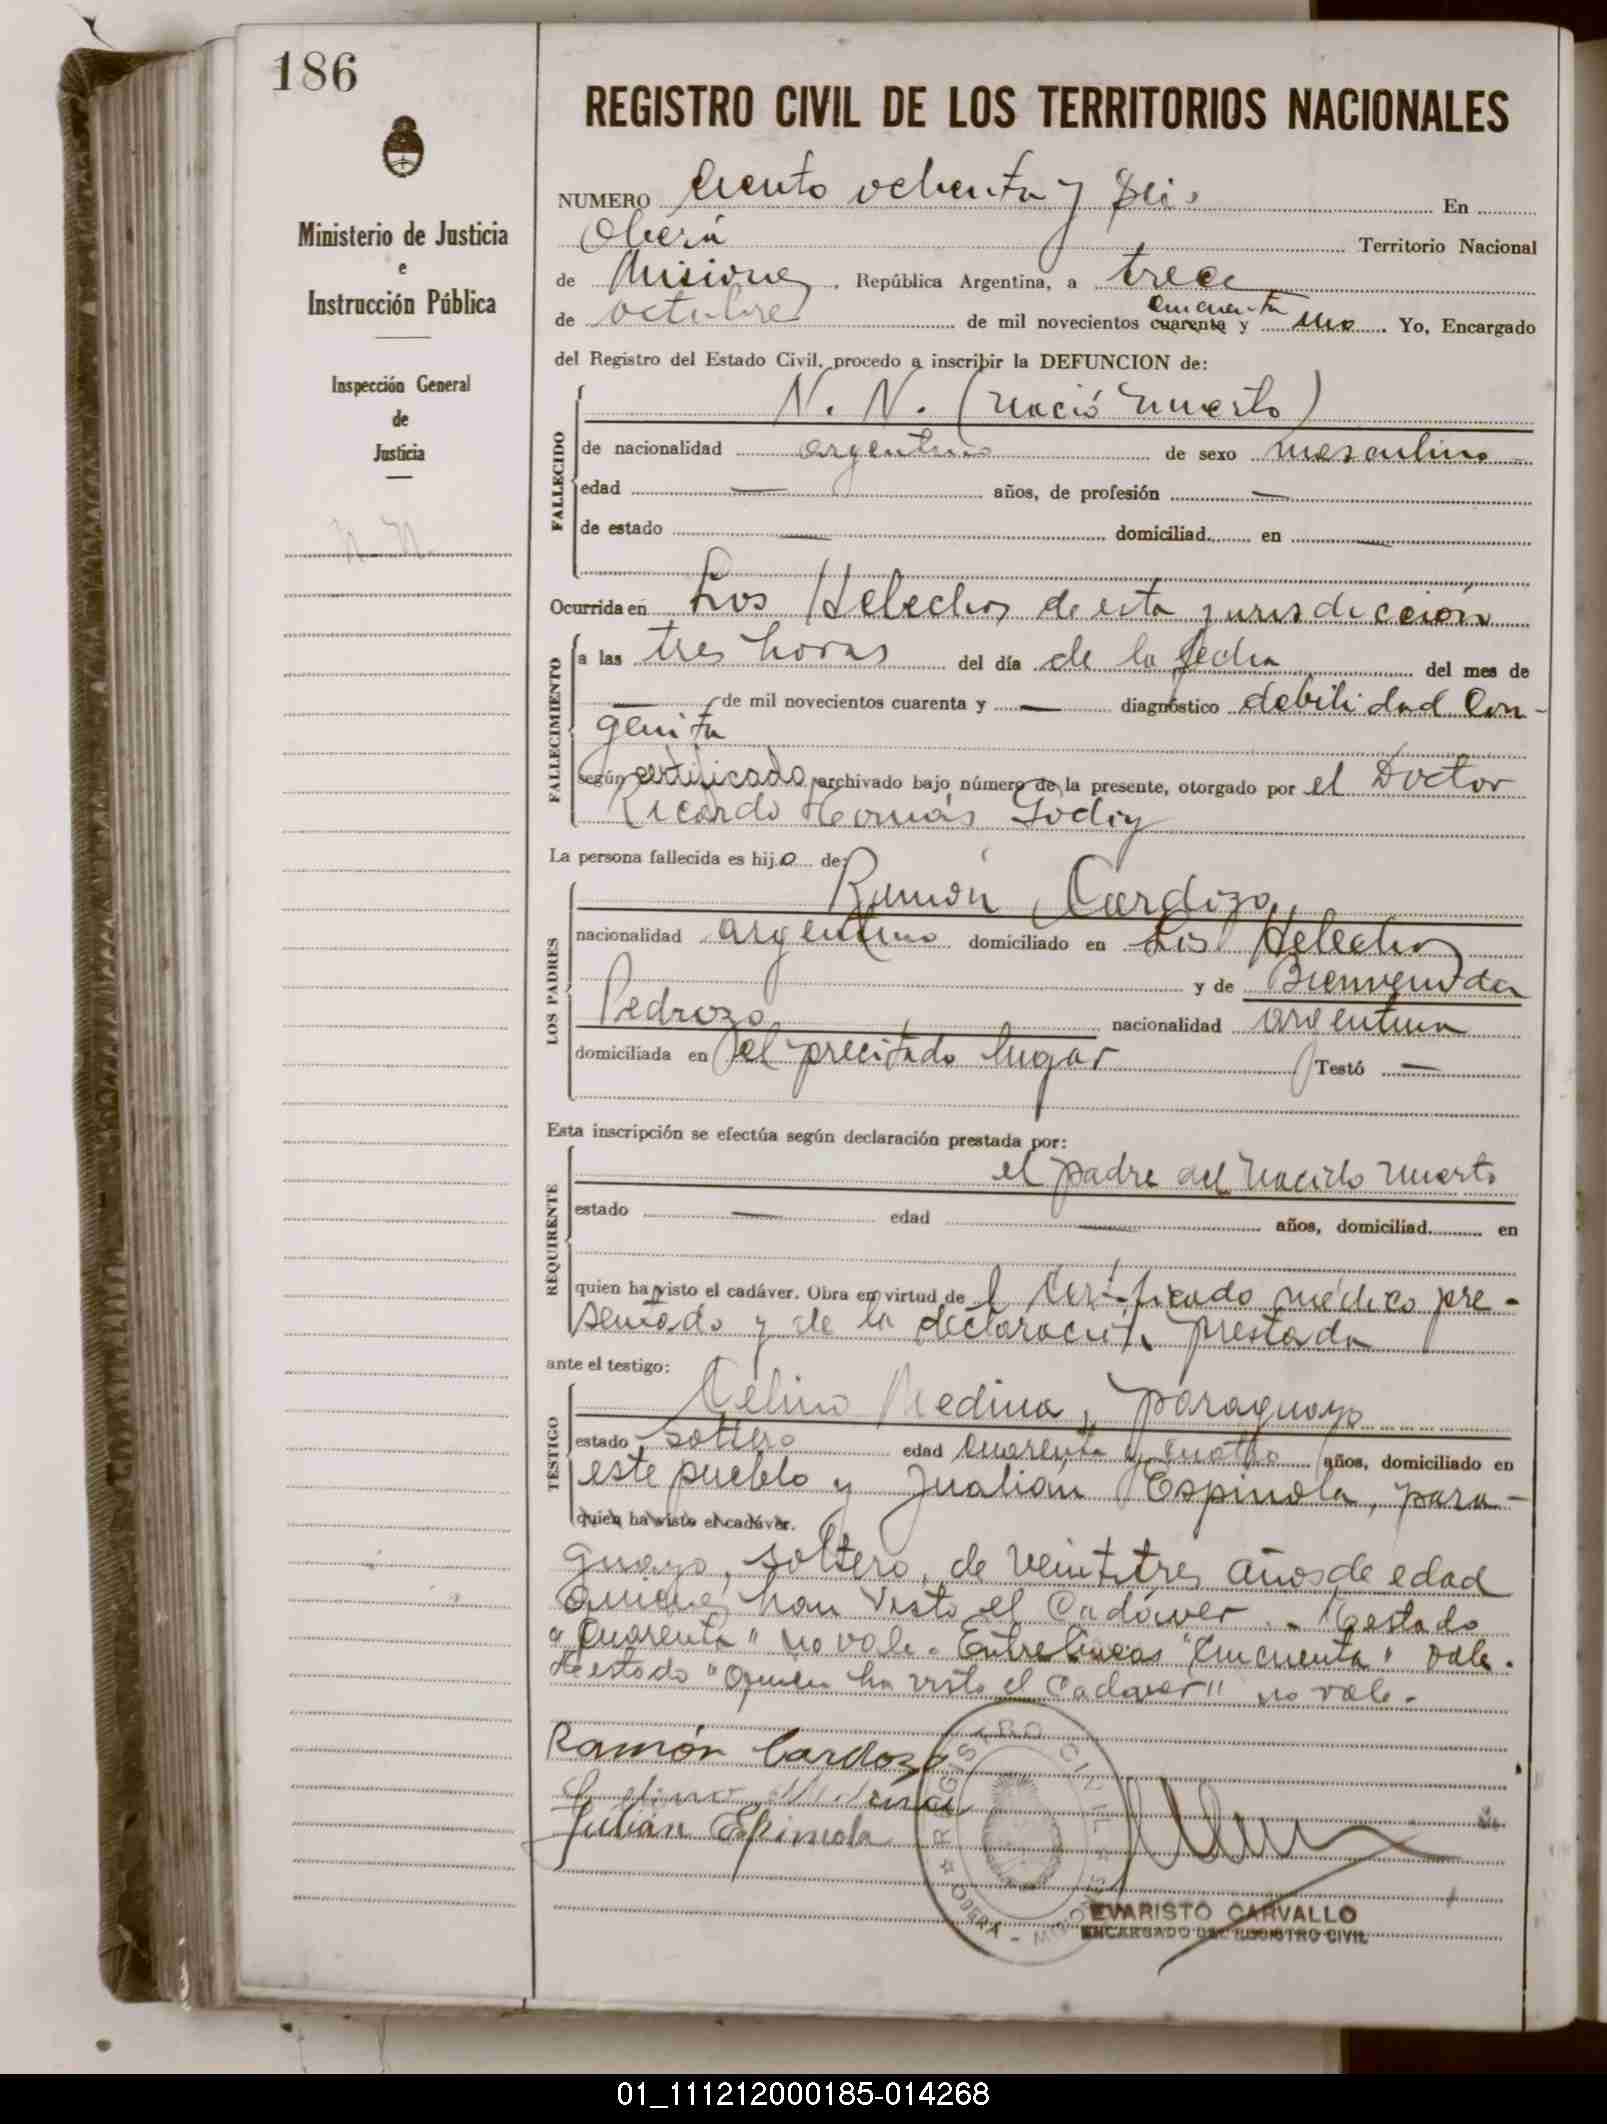 186
REGISTRO CIVIL DE LOS TERRITORIOS NACIONALES
Ministerio de Justicia
e
Instrucción Pública
Inspección General
de
Justicia
N. N.
NUMERO Ciento ochenta y Seis En
Oberá Territorio Nacional
de Misiones, República Argentina, a trece
cincuenta
de octubre de mil novecientos cuarenta y uno. Yo, Encargado
del Registro del Estado Civil, procedo a inscribir la DEFUNCION de:
FALLECIDO
N. N. (Nació Muerto)
de nacionalidad argentino de sexo masculino
edad — años, de profesión —
de estado — domiciliad. en —
Ocurrida en Los Helechos de esta jurisdicción
FALLECIMIENTO
a las tres horas del día de la fecha del mes de
— de mil novecientos cuarenta y — diagnóstico debilidad Con-
genita
según certificado archivado bajo número de la presente, otorgado por el Doctor
Ricardo Tomás Godoy
La persona fallecida es hijo de:
LOS PADRES
Ramón Cardozo
nacionalidad argentino domiciliado en Los Helechos
y de Bienvenida
Pedrozo nacionalidad argentina
domiciliada en el precitado lugar Testó —
Esta inscripción se efectúa según declaración prestada por:
REQUIRENTE
el padre del Nacido Muerto
estado — edad — años, domiciliad. en
quien ha visto el cadáver. Obra en virtud de l Certificado médico pre-
sentado y de la declaración prestada
ante el testigo:
TESTIGO
Celino Medina, paraguayo
estado soltero edad cuarenta y cuatro años, domiciliado en
este pueblo y Jualián Espinola, para-
quien ha visto el cadáver.
guayo, soltero, de veintitres años de edad
quienes han visto el Cadáver.- Testado
"Cuarenta" no vale. Entrelineas "Cincuenta" vale.
Testado "Quien ha visto el Cadaver" no vale.
Ramón Cardozo
Celino Medina
Julián Espinola
REGISTRO CIVIL
OBERA - MISIONES
EVARISTO CARVALLO
ENCARGADO DEL REGISTRO CIVIL
01_111212000185-014268